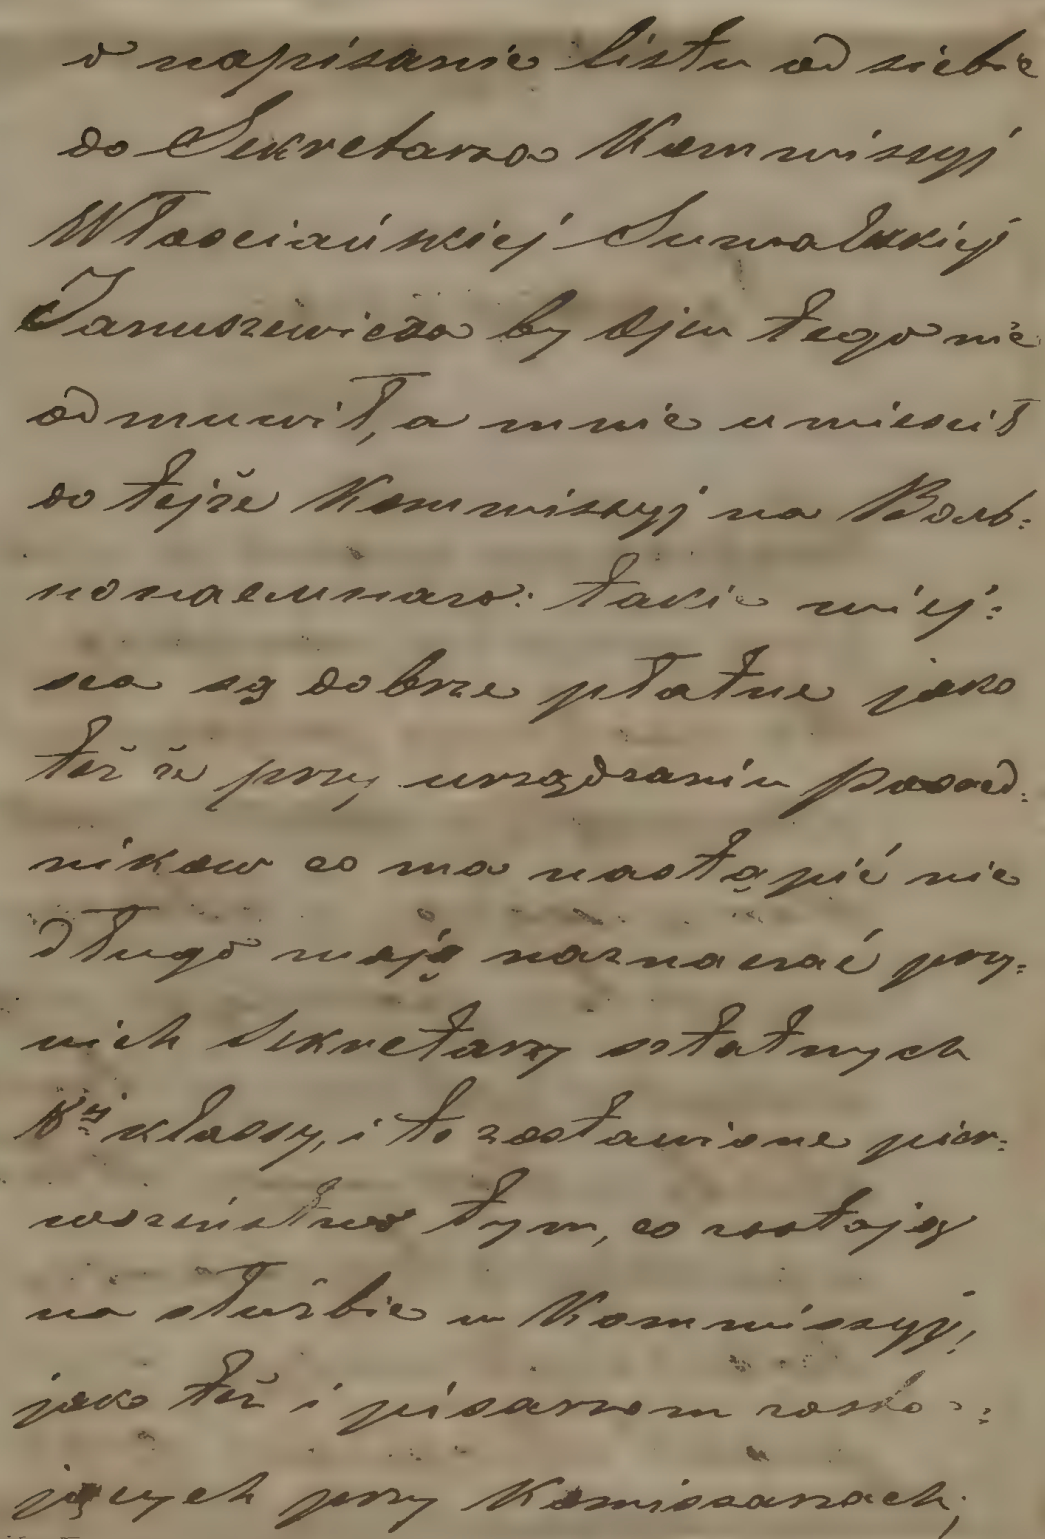 o napisanie listu od siebie
do Sekretarza Kommissyj
Włościańskiej Suwalskiej
Januszewicza by Ojcu tego nie
odmuwił, a mnie umieścił
do tejże Kommissyj na Вольб-
нонаемнаго: takie miej:
sca są dobrze płatne jako
też że przy urządzaniu Posred:
nikow co ma nastąpić nie
długo mają naznaczać przy:
nich Sekretarzy sztatnych
8ej klassy, i to zostawione pier:
wszeństwo tym, co zostają
na służbie w Kommissyj,
jako też i pisarzom zosta:
jących przy Komissarzach;